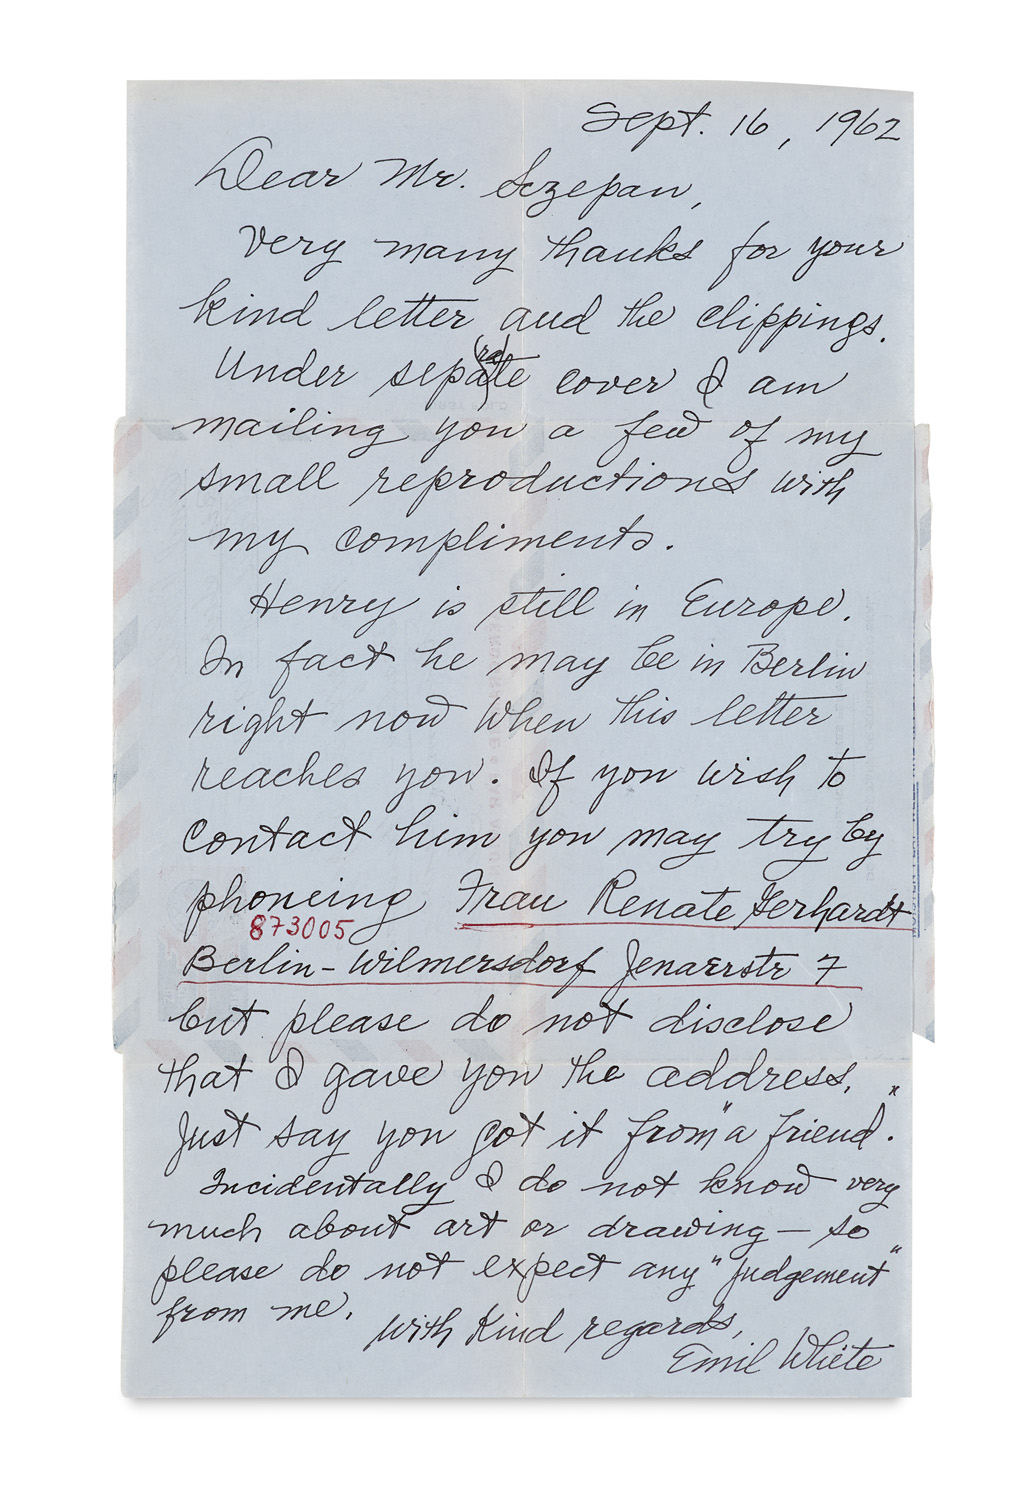 Sept. 16, 1962
Dear Mr. Sczepan,
Very many thanks for your
kind letter and the clippings.
Under separate cover I am
mailing you a few of my
small reproductions with
my compliments.
Henry is still in Europe.
In fact he may be in Berlin
right now when this letter
reaches you. If you wish to
contact him you may try by
phoneing Frau Renate Gerhardt
873005
Berlin-Wilmersdorf Jenaerstr 7
but please do not disclose
that I gave you the address,
Just say you got it from "a friend".
Incidentally I do not know very
much about art or drawing — so
please do not expect any "judgement"
from me.
With Kind regards,
Emil White